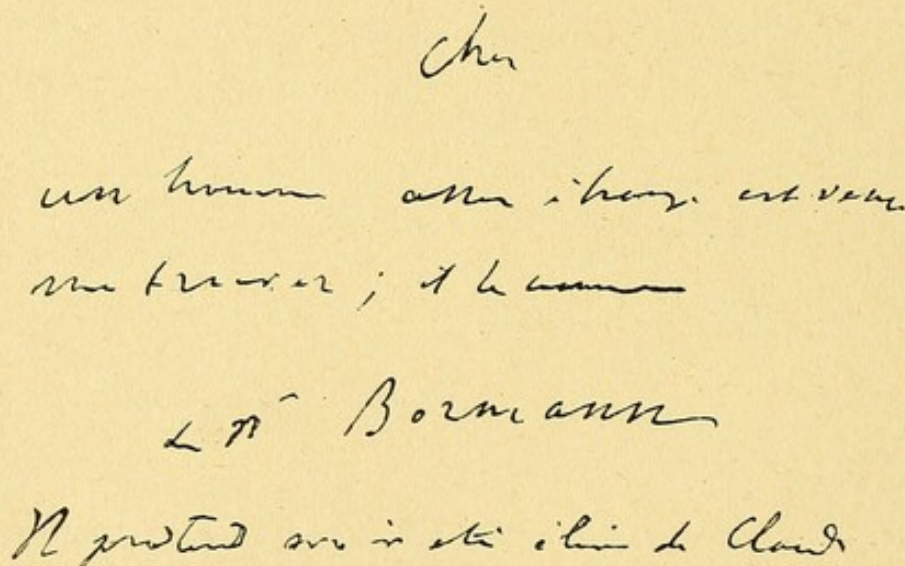 Cher
un homme assez étrange est venu
me trouver ; il se nomme
Bormann
Il prétend avoir été élève de Claude